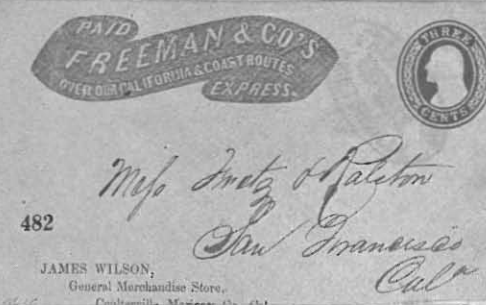 PAID
FREEMAN & CO'S
OVER OUR CALIFORNIA & COAST ROUTES
EXPRESS.
THREE
CENTS
Mess Fretz & Ralston
San Francisco
Cala
482
JAMES WILSON,
General Merchandise Store,
Coulterville, Mariposa Co. Cal.